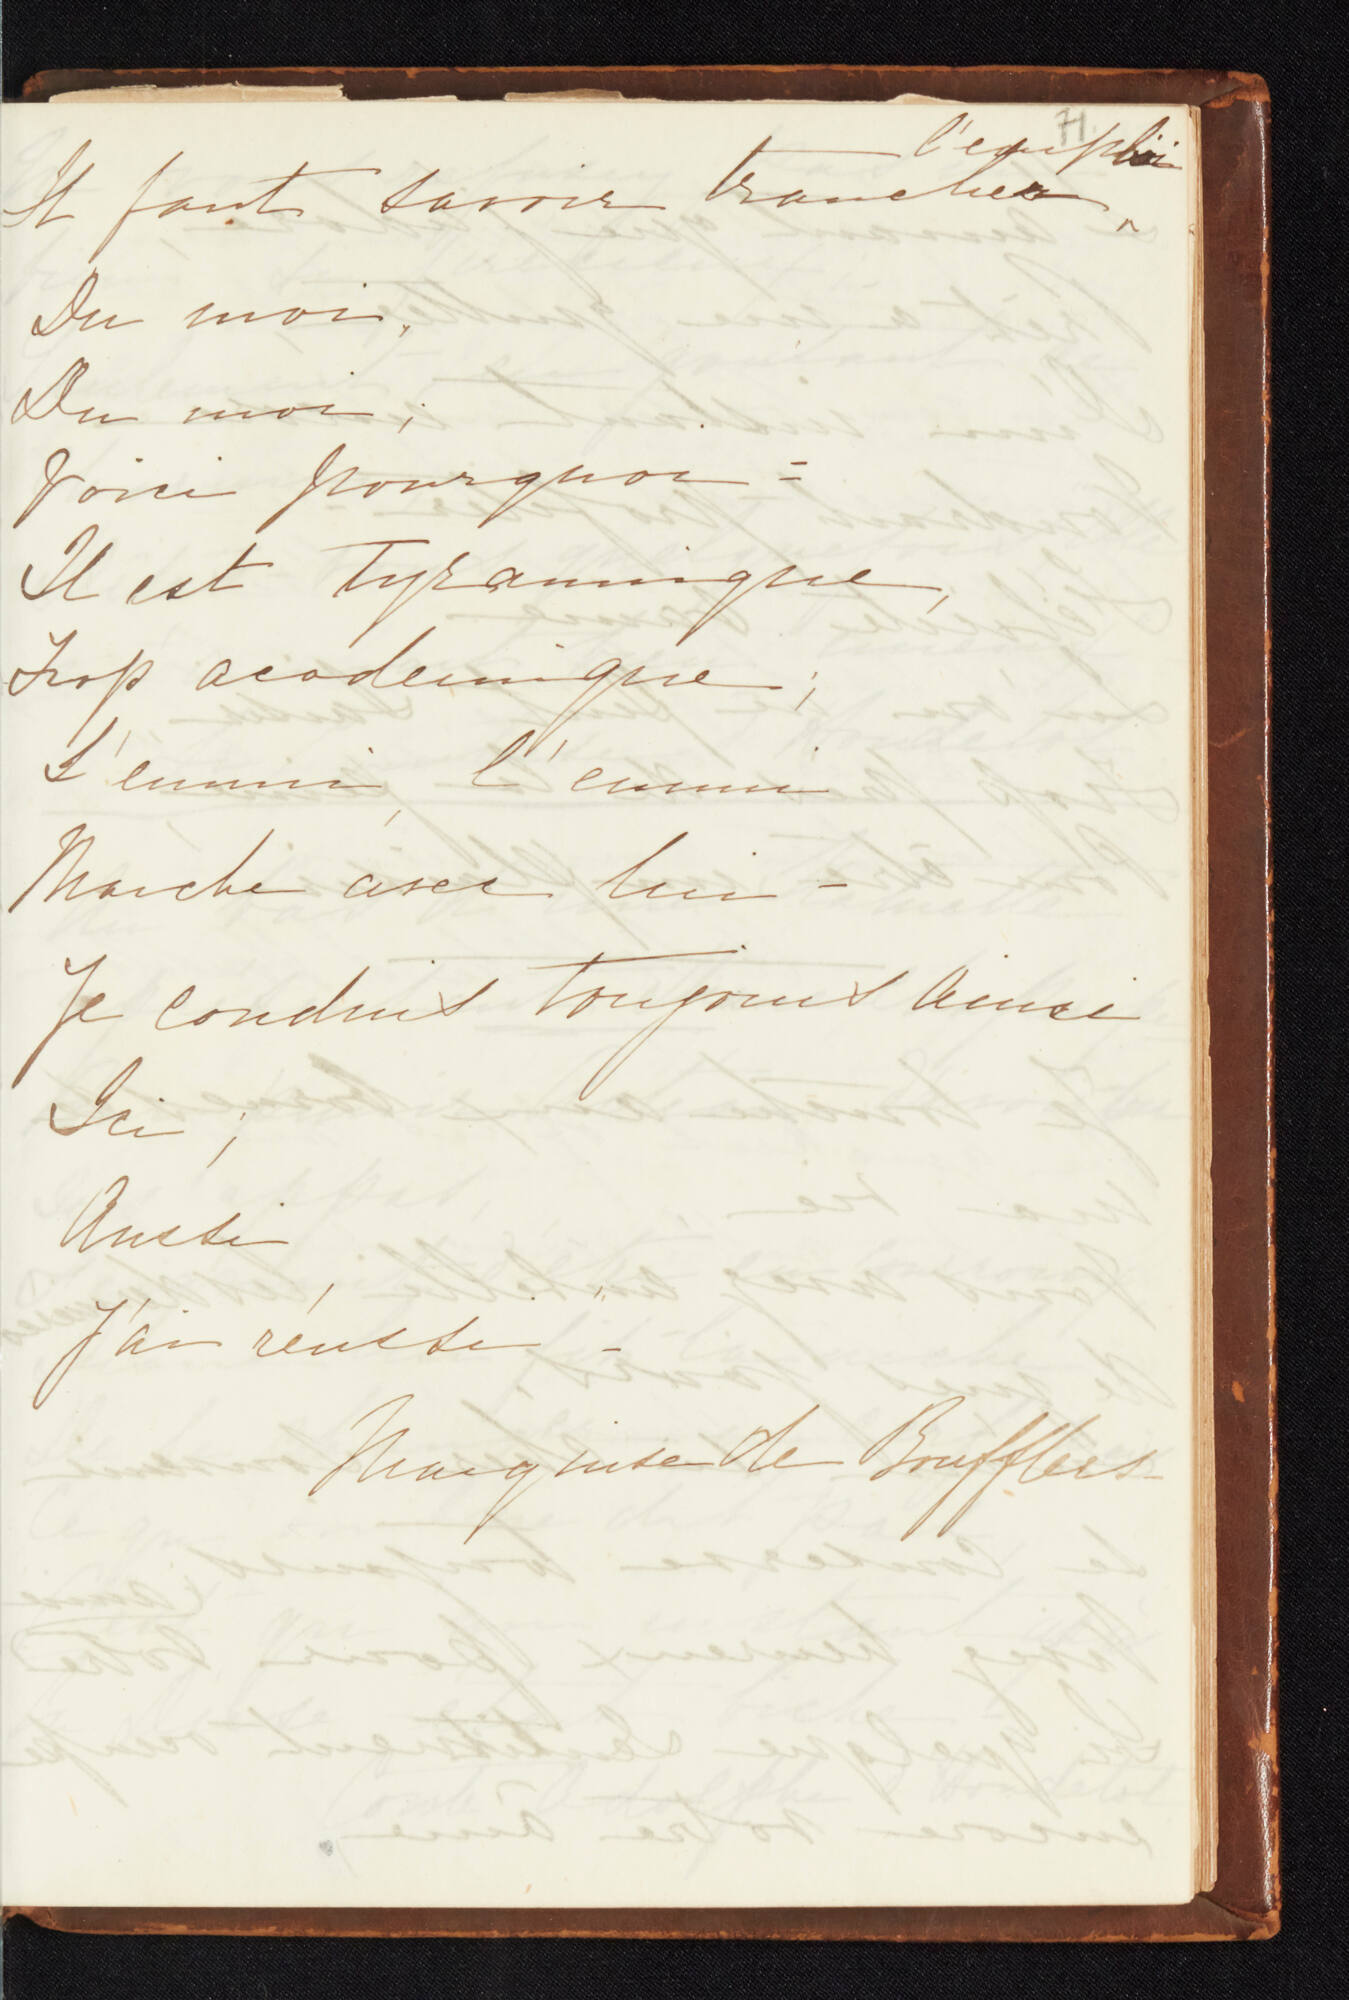 71.
l'emploi
Il faut savoir trancher ^
Du moi,
Du moi;
Voici pourquoi =
Il est tyrannique,
Trop academique;
L'ennui, l'ennui
Marche avec lui -
Je conduis toujours ainsi
Ici;
Aussi
J'ai réussi -
Marquise de Boufflers